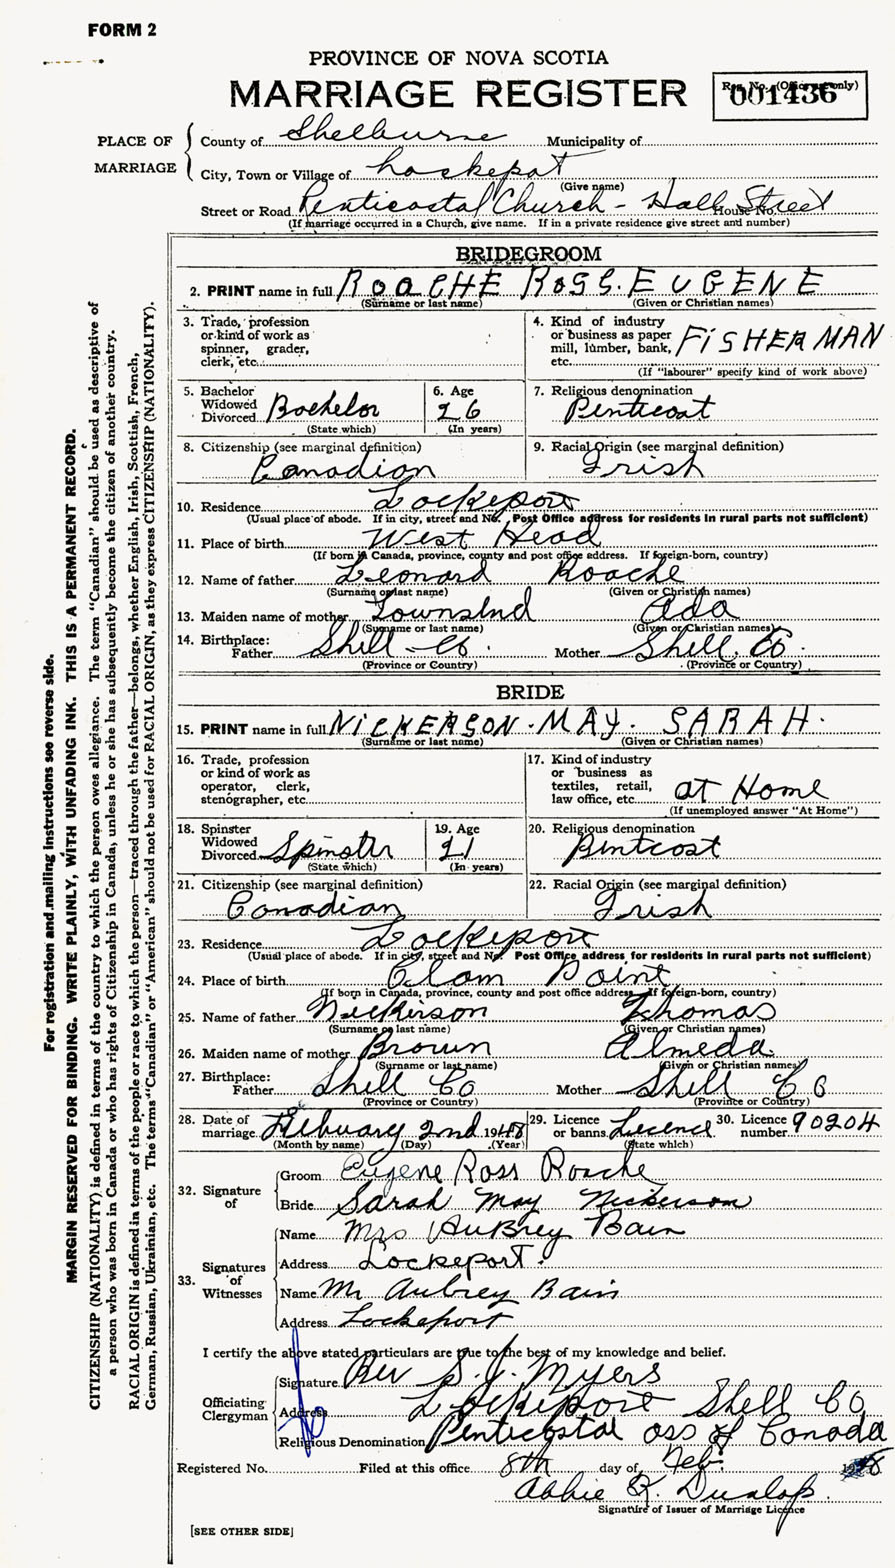 FORM 2
PROVINCE OF NOVA SCOTIA
MARRIAGE REGISTER
Reg. No. (Office use only)
001436
PLACE OF MARRIAGE
County of Shelburne Municipality of
City, Town or Village of Lockeport
(Give name)
Street or Road Penticostal Church - Hall Street House No.
(If marriage occurred in a Church, give name. If in a private residence give street and number)
BRIDEGROOM
2. PRINT name in full ROACHE ROSS. EUGENE
(Surname or last name) (Given or Christian names)
3. Trade, profession or kind of work as spinner, grader, clerk, etc.
4. Kind of industry or business as paper mill, lumber, bank, etc. FiSHERMAN
(If "labourer" specify kind of work above)
5. Bachelor Widowed Divorced Bachelor
(State which)
6. Age 26
(In years)
7. Religious denomination Penticost
8. Citizenship (see marginal definition) Canadian
9. Racial Origin (see marginal definition) Irish
10. Residence Lockeport
(Usual place of abode. If in city, street and No. Post Office address for residents in rural parts not sufficient)
11. Place of birth West Head
(If born in Canada, province, county and post office address. If foreign-born, country)
12. Name of father Leonard Roache
(Surname or last name) (Given or Christian names)
13. Maiden name of mother Townsend Ada
(Surname or last name) (Given or Christian names)
14. Birthplace: Father Shell - Co. Mother Shell. Co.
(Province or Country) (Province or Country)
BRIDE
15. PRINT name in full NiCKERSON. MAY. SARAH.
(Surname or last name) (Given or Christian names)
16. Trade, profession or kind of work as operator, clerk, stenographer, etc.
17. Kind of industry or business as textiles, retail, law office, etc at Home
(If unemployed answer "At Home")
18. Spinster Widowed Divorced Spinster
(State which)
19. Age 21
(In years)
20. Religious denomination Penticost
21. Citizenship (see marginal definition) Canadian
22. Racial Origin (see marginal definition) Irish
23. Residence Lockeport
(Usual place of abode. If in city, street and No. Post Office address for residents in rural parts not sufficient)
24. Place of birth Clam Point
(If born in Canada, province, county and post office address. If foreign-born, country)
25. Name of father Nickerson Thomas
(Surname or last name) (Given or Christian names)
26. Maiden name of mother Brown Almeda
(Surname or last name) (Given or Christian names)
27. Birthplace: Father Shell Co Mother Shell Co
(Province or Country) (Province or Country)
28. Date of marriage February 2nd 1948
(Month by name) (Day) (Year)
29. Licence or banns Licence
(State which)
30. Licence number 90204
32. Signature of
Groom Eugene Ross Roache
Bride Sarah May Nickerson
33. Signatures of Witnesses
Name Mrs Aubrey Bain
Address Lockeport.
Name Mr Aubrey Bain
Address Lockeport
I certify the above stated particulars are true to the best of my knowledge and belief.
Officiating Clergyman
Signature Rev S. J. Myers
Address Lockeport Shell Co
Religious Denomination Penticostal ass of Canada
Registered No. Filed at this office 8th day of Feb. 1948
Abbie R. Dunlop.
Signature of Issuer of Marriage Licence
[SEE OTHER SIDE]
For registration and mailing instructions see reverse side.
MARGIN RESERVED FOR BINDING. WRITE PLAINLY, WITH UNFADING INK. THIS IS A PERMANENT RECORD.
CITIZENSHIP (NATIONALITY) is defined in terms of the country to which the person owes allegiance. The term "Canadian" should be used as descriptive of
a person who was born in Canada or who has rights of Citizenship in Canada, unless he or she has subsequently become the citizen of another country.
RACIAL ORIGIN is defined in terms of the people or race to which the person—traced through the father—belongs, whether English, Irish, Scottish, French,
German, Russian, Ukrainian, etc. The terms "Canadian" or "American" should not be used for RACIAL ORIGIN, as they express CITIZENSHIP (NATIONALITY).